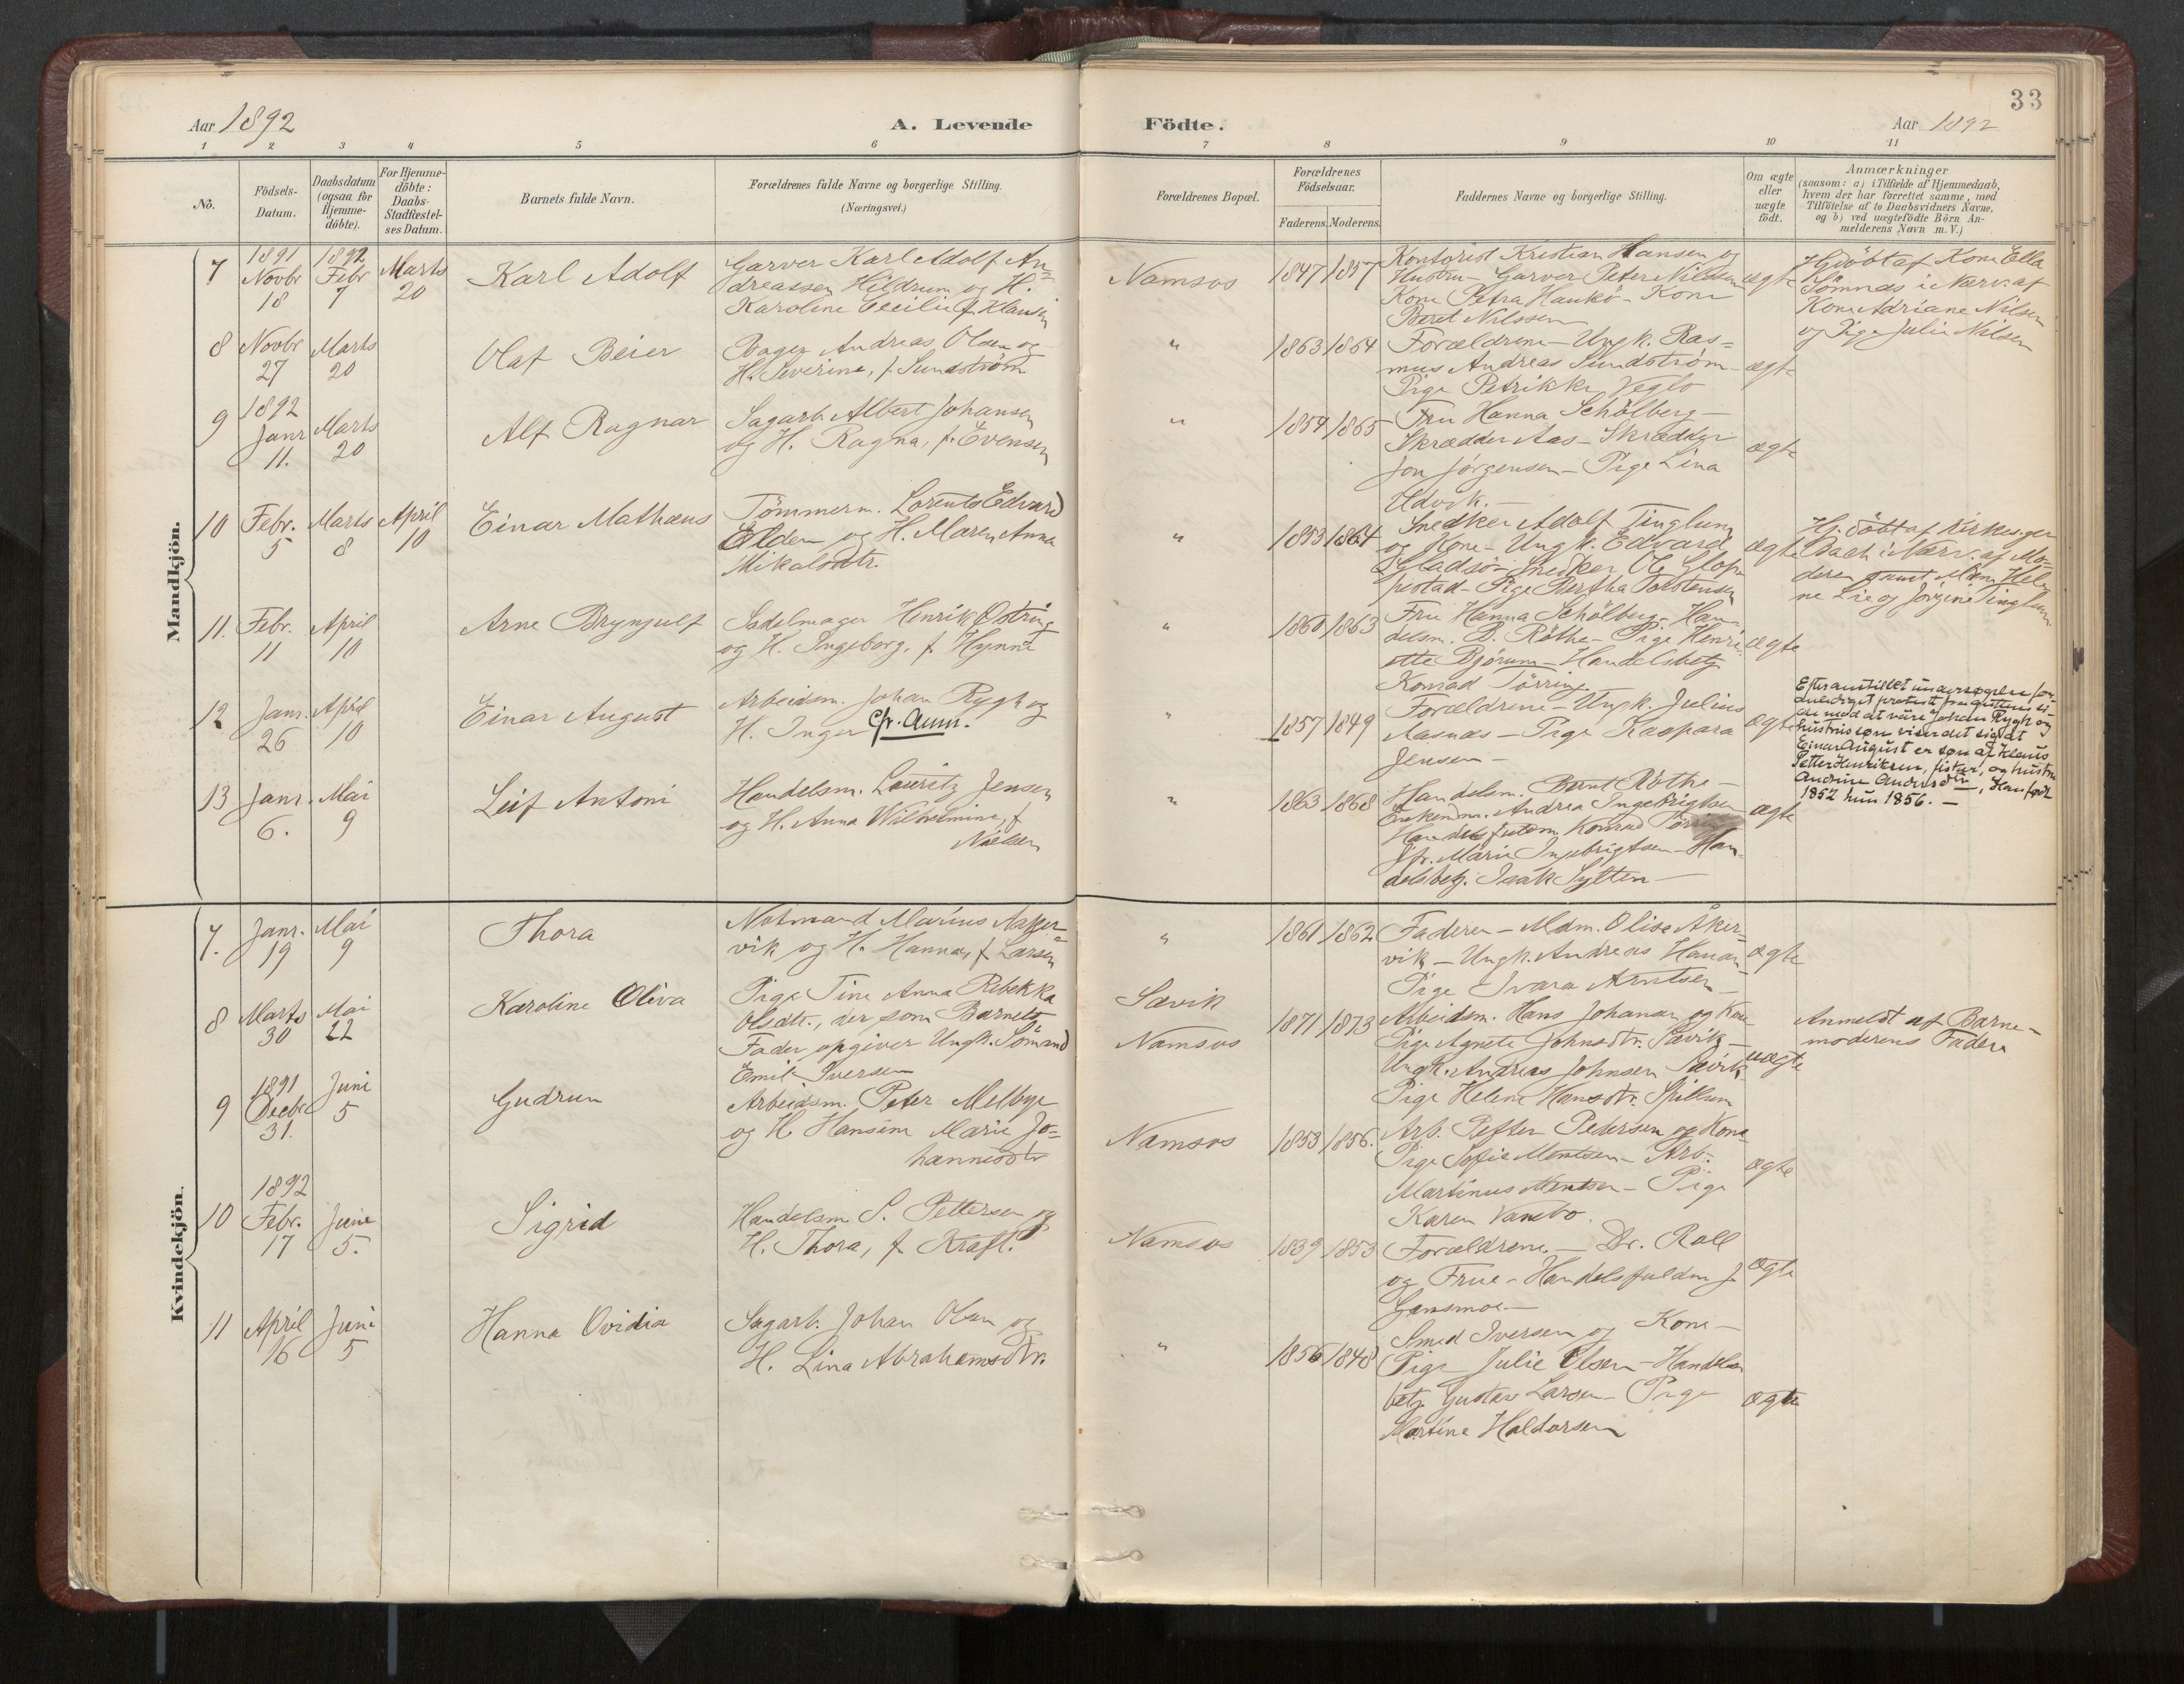 33
Aar 1892
A. Levende Födte.
Aar 1892
1 2 3 4 5 6 7 8 9 10 11
No.
Födsels-Datum.
Daabsdatum (ogsaa for Hjemme-döbte).
For Hjemme-döbte: Daabs-Stadfæstel-ses Datum.
Barnets fulde Navn.
Forældrenes fulde Navne og borgerlige Stilling.
(Næringsvei.)
Forældrenes Bopæl.
Forældrenes Födselsaar.
Faderens. Moderens.
Faddernes Navne og borgerlige Stilling.
Om ægte eller uægte födt.
Anmærkninger
(saasom: a) i Tilfælde af Hjemmedaab,
hvem der har forrettet samme, med
Tilföielse af to Daabsvidners Navne,
og b) ved uægtefödte Börn An-
melderens Navn m. V.)
Mandkjön.
7
1891 Novbr 18
1892 Febr 7
Marts 20
Karl Adolf
Garver Karl Adolf An-
dreassen Hildrum og H.
Karoline Cecilie f. Klausen
Namsos
1847 1857
Kontorist Kristian Hansen og
Hustru - Garver Peter Nilssen
Kone Petra Haukö - Kone
Beret Nilssen
ægte
Hjdöbt af Kone Ella
Sömnæs i Nærv. af
Kone Adriane Nilsen
og Pige Julie Nilsen
8
Novbr 27
Marts 20
Olaf Beier
Bager Andreas Olsen og
H. Severine, f. Sundström
"
1863 1864
Forældrene - Ungk. Ras-
mus Andreas Sundström -
Pige Petrikke Veglo
ægte
9
1892 Janr 11.
Marts 20
Alf Ragnar
Sagarb. Albert Johansen
og H. Ragna, f. Evensen
"
1854 1865
Fru Hanna Schölberg -
Skrædder Aas - Skrædder
Jon Jörgensen - Pige Lina
Udvik. -
ægte
10
Febr. 5
Marts 8
April 10
Einar Mathæus
Tömmerm. Lorents Edvard
Elden og H. Maren Anna
Mikalsdtr.
"
1853 1864
Snedker Adolf Tinglum
og Kone - Ungk. Edvard
Gladsö - Snedker Ole Glop-
pestad - Pige Bertha Torstensen
ægte
Hj. döbt af Kirkesger
Bach i Nærv. af Mo-
deren samt Mdm Hele-
ne Lie og Jörgine Tinglum
11.
Febr. 11
April 10
Arne Brynjulf
Sadelmager Henrik Östring
og H. Ingeborg, f. Hynne
"
1860 1863
Fru Hanna Schölberg - Han-
delsm. B. Röthe - Pige Henri-
ette Björum - Handelsbetj
Konrad Törring
ægte
12
Janr. 26
April 10
Einar August
Arbeidsm. Johan Rygh og
H. Inger cfr. Anm.
"
1857 1849
Forældrene - Ungk. Julius
Aasnæs - Pige Kaspara
Jensen -
ægte
Efter anstillet undersøgelse for-
anlediget protest fra guttens si-
de mod at være Johan Rygh og
hustrus søn viser det sig at
Einar August er søn af Klaus
Petter Henriksen, fisker, og hustru
Andrine Andersdtr, Han født
1852 hun 1856. -
13
Janr. 6.
Mai 9
Leif Antoni
Handelsm. Lauritz Jensen
og H. Anna Wilhelmine, f
Nielsen
"
1863 1868
Handelsm. Bernt Röthe -
Enkem. Andrea Ingebrigtsen
Handelsfuldm. Konrad Törring
Jfr. Marie Ingebrigtsen - Han-
delsbetj. Isak Sylten -
ægte
Kvindekjön.
7.
Janr. 19
Mai 9
Thora
Notmand Marius Aaker-
vik og H. Hanna, f. Larsen
"
1861 1862
Faderen - Mdm. Olise Åker-
vik - Ungk. Andreas Hanan-
Pige Ivara Arntsen -
ægte
8
Marts 30
Mai 22
Karoline Oliva
Pige Tine Anna Rebekka
Olsdtr., der som Barnets
Fader opgiver Ungk. Sömand
Emil Iversen
Sævik
Namsos
1871 1873
Arbeidsm. Hans Johansen og Kone
Pige Agnete Johnsdtr. Sævik -
Ungk. Andreas Johnsen Sævik
Pige Helene Hansdtr. Spillum
uægte
Anmeldt af Barne-
moderens Fader
9
1891 Decbr 31.
Juni 5
Gudrun
Arbeidsm. Peter Melbye
og H Hansine Marie Jo-
hannesdtr
Namsos
1853 1856.
Arb. Petter Pedersen og Kone
Pige Sofie Mentsen - Arb.
Martinus Mentsen - Pige
Karen Vanebo.
ægte
10
1892 Febr. 17
Juni 5.
Sigrid
Handelsm. S. Pettersen og
H. Thora, f. Kraft.
Namsos
1839 1853
Forældrene. - Dr. Roll
og Frue - Handelsfuldm J.
Gansmoe -
ægte
11
April 16
Juni 5
Hanna Ovidia
Sagarb. Johan Olsen og
H. Lina Abrahamsdtr.
"
1856 1848
Smed Iversen og Kone -
Pige Julie Olsen - Handels-
betj. Gustav Larsen - Pige
Martine Haldorsen
ægte